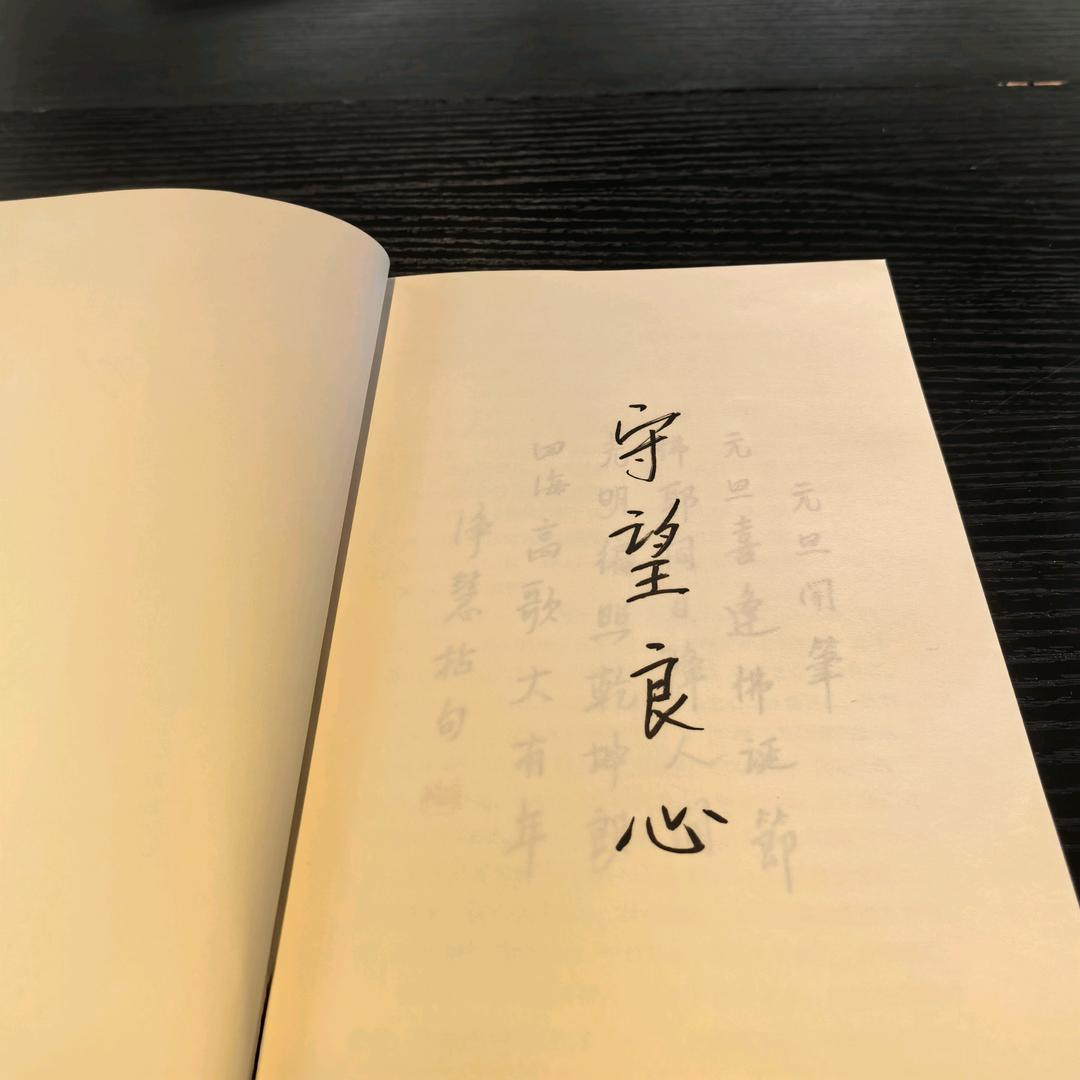 守望良心
元旦開筆
元旦喜逢佛誕節
四海高歌大有年
淨慧拈句